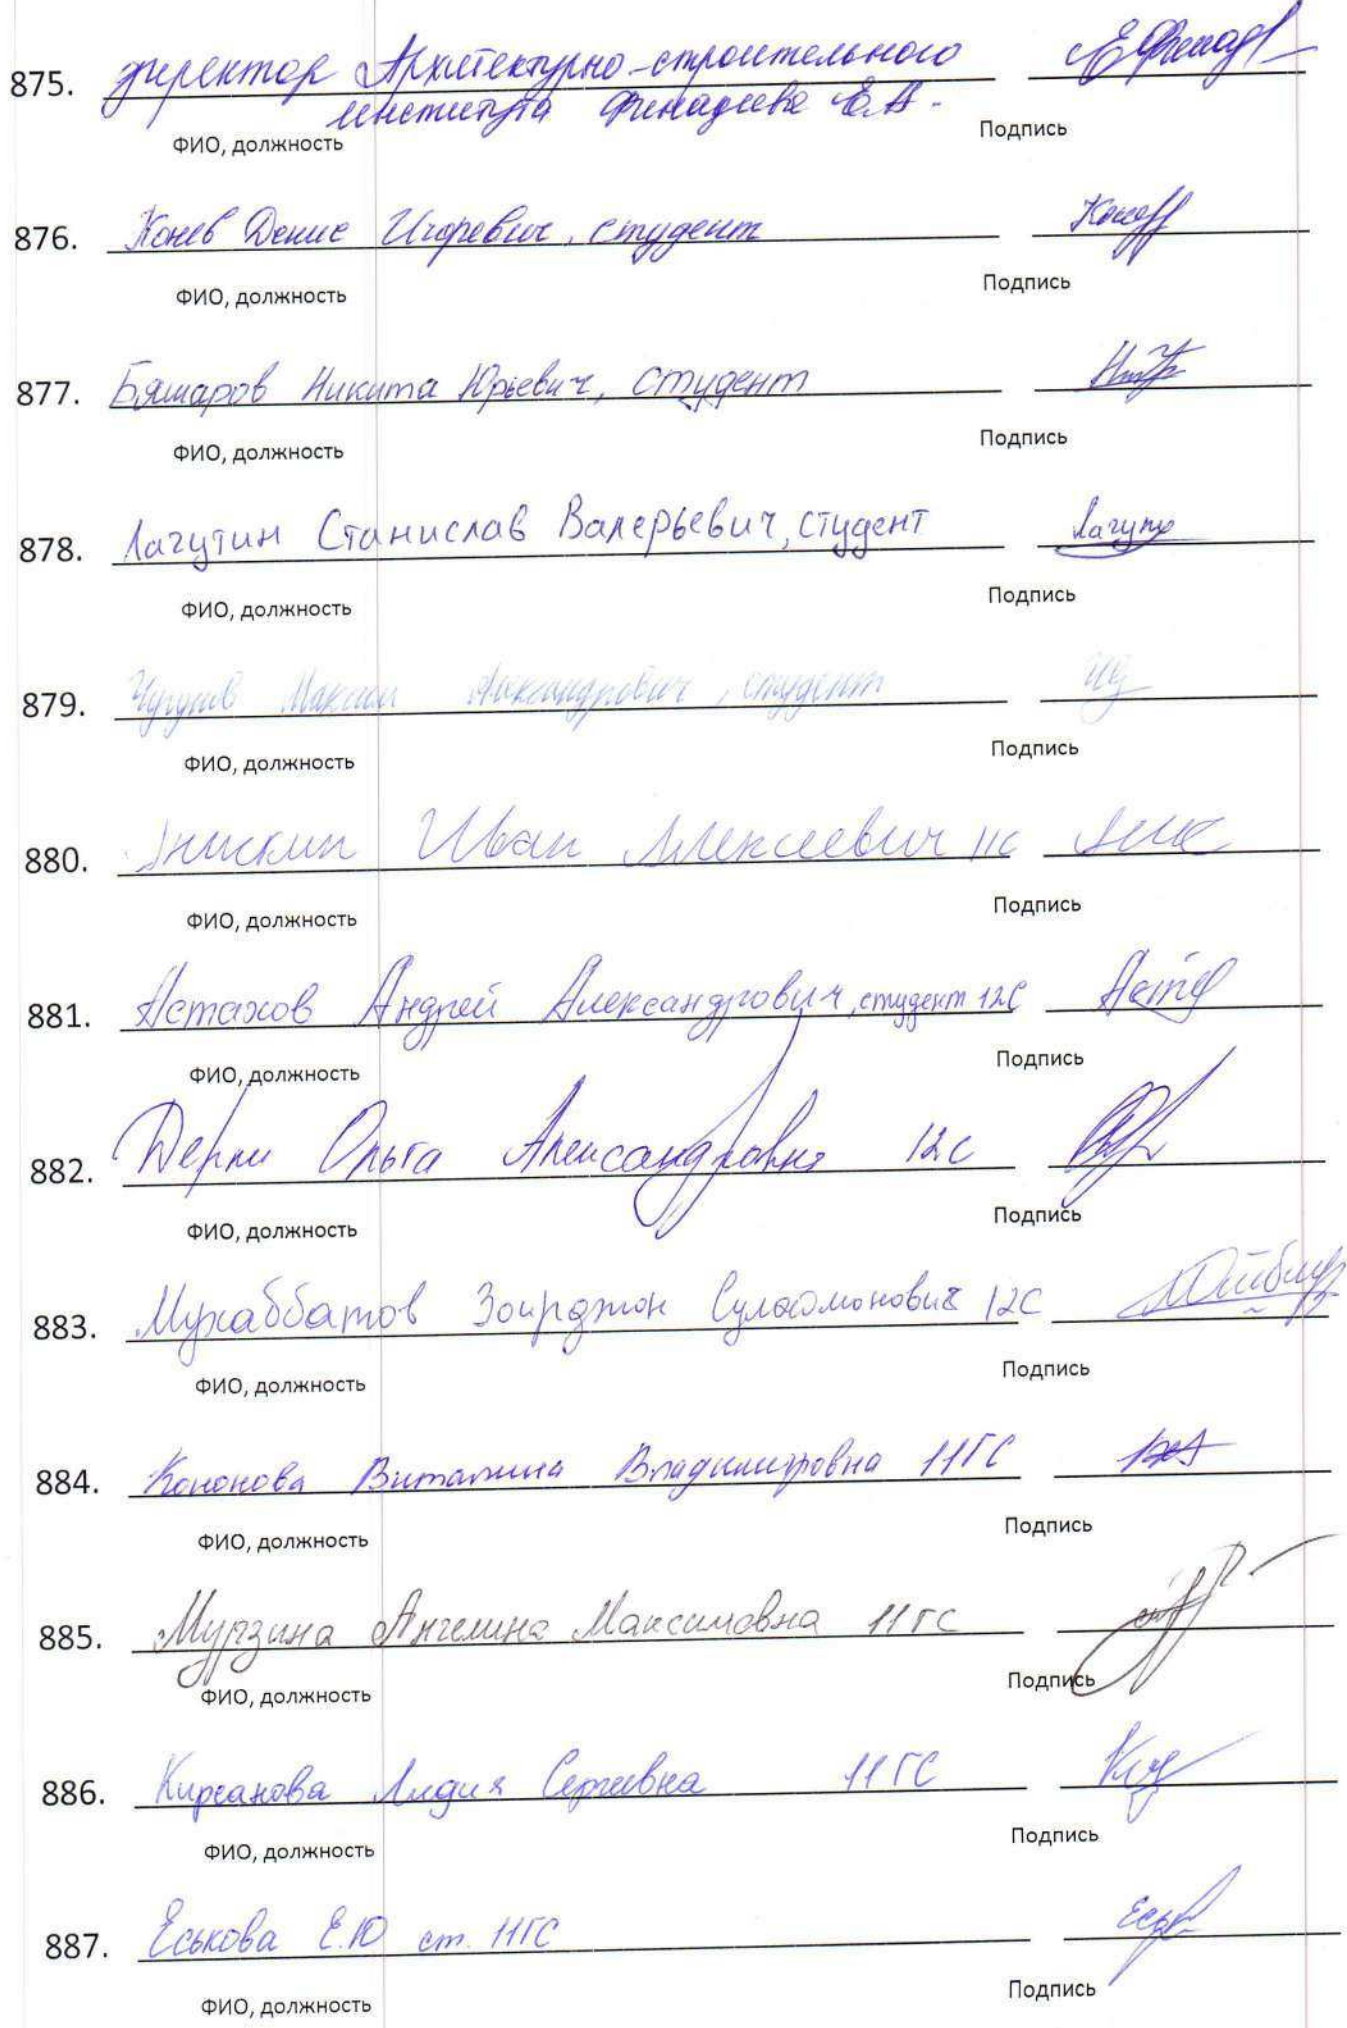 875. директор Архитектурно-строительного
института Финадеева Е.А.
ФИО, должность Подпись
876. Конев Денис Игоревич, студент
ФИО, должность Подпись
877. Бяшаров Никита Юрьевич, студент
ФИО, должность Подпись
878. Лагутин Станислав Валерьевич, студент
ФИО, должность Подпись
879. Максим Александрович, студент
ФИО, должность Подпись
880. Аникин Иван Алексеевич 11С
ФИО, должность Подпись
881. Астахов Андрей Александрович, студент 12С
ФИО, должность Подпись
882. Ольга Александровна 12С
ФИО, должность Подпись
883. Мухаббатов Зоирджон 12С
ФИО, должность Подпись
884. Кононова Виталина Владимировна 11ГС
ФИО, должность Подпись
885. Мурзина Ангелина Максимовна 11ГС
ФИО, должность Подпись
886. Кирсанова Лидия Сергеевна 11ГС
ФИО, должность Подпись
887. Еськова Е.Ю ст. 11ГС
ФИО, должность Подпись